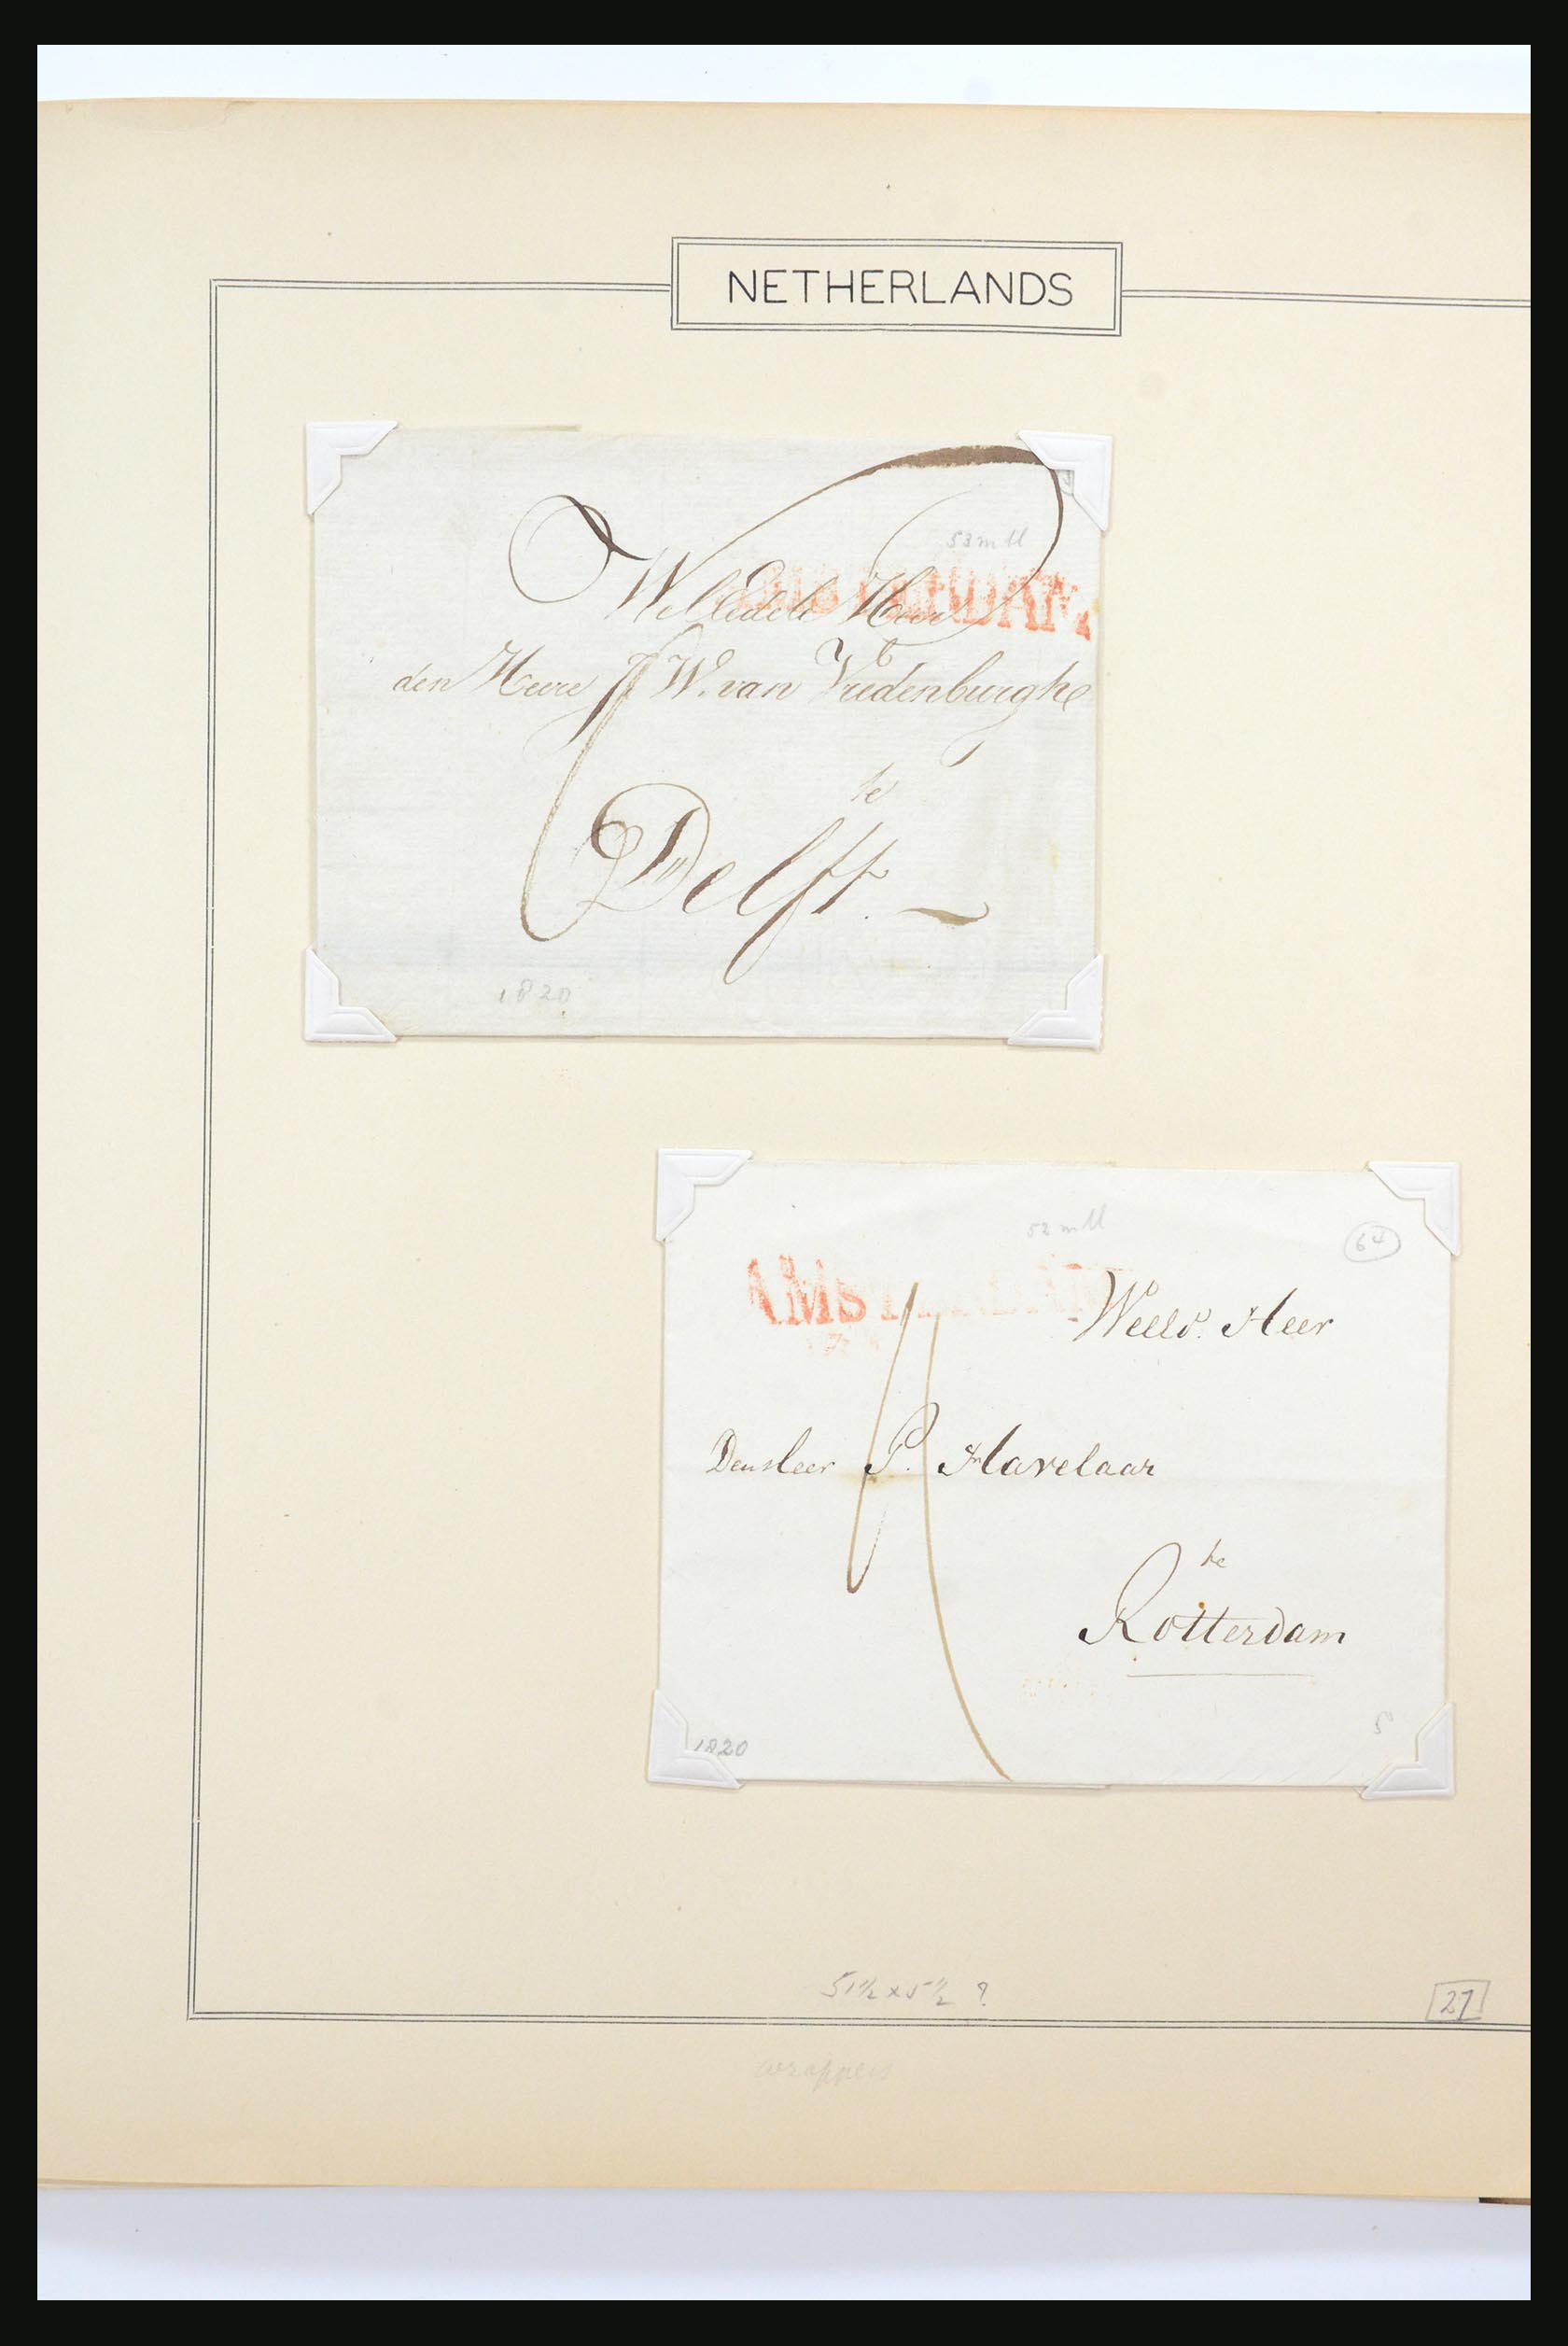 NETHERLANDS
53 mM
AMSTERDAM
WelEdele Heer
den Heere W. van Vredenburgh
te
Delft.
1820
52 mM
64
AMSTERDAM
WelEd. Heer
Den Heer P. Havelaar
te
Rotterdam
1820
5
51½ x 5½ ?
27
wrappers